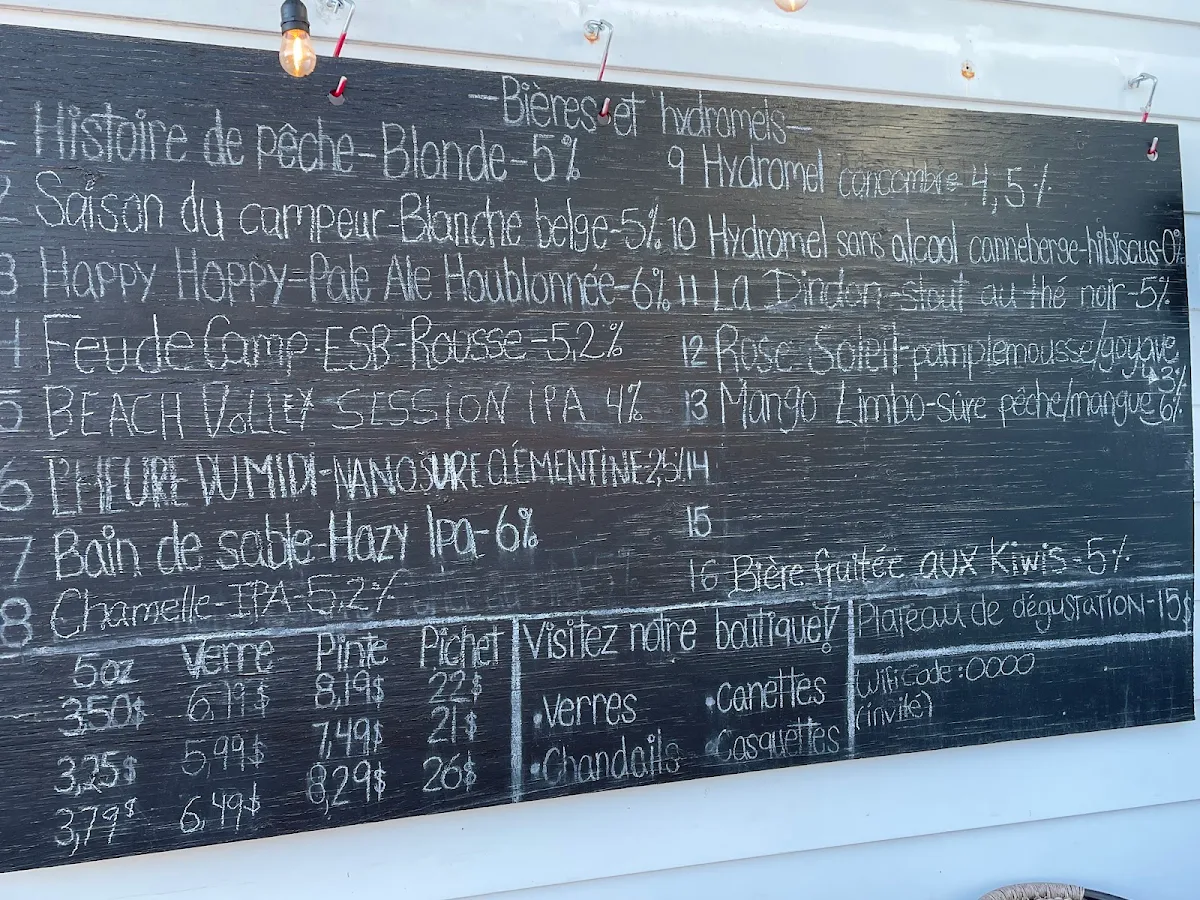 -Bières et hydromels-
- Histoire de pêche-Blonde-5%
2 Saison du campeur-Blanche belge-5%
3 Happy Hoppy-Pale Ale Houblonnée-6%
Feu de Camp-ESB-Rousse-5,2%
5 BEACH VOLLEY SESSION IPA 4%
6 L'HEURE DU MIDI-NANOSURE CLÉMENTINE 2,5%
7 Bain de sable-Hazy Ipa-6%
8 Chamelle-IPA-5,2%
9 Hydromel concombre-4,5%
10 Hydromel sans alcool canneberge-hibiscus-0%
11 La Dindon-stout au thé noir-5%
12 Rose Soleil-pamplemousse/goyave
3%
13 Mango Limbo-sûre pêche/mangue 6%
14
15
16 Bière fruitée aux Kiwis-5%
5oz Verre Pinte Pichet
3,50$ 6,19$ 8,19$ 22$
3,25$ 5,99$ 7,49$ 21$
3,79$ 6,49$ 8,29$ 26$
Visitez notre boutique!
•verres •canettes
•Chandails •Casquettes
Plateau de dégustation-15$
Wifi code:0000
(invité)